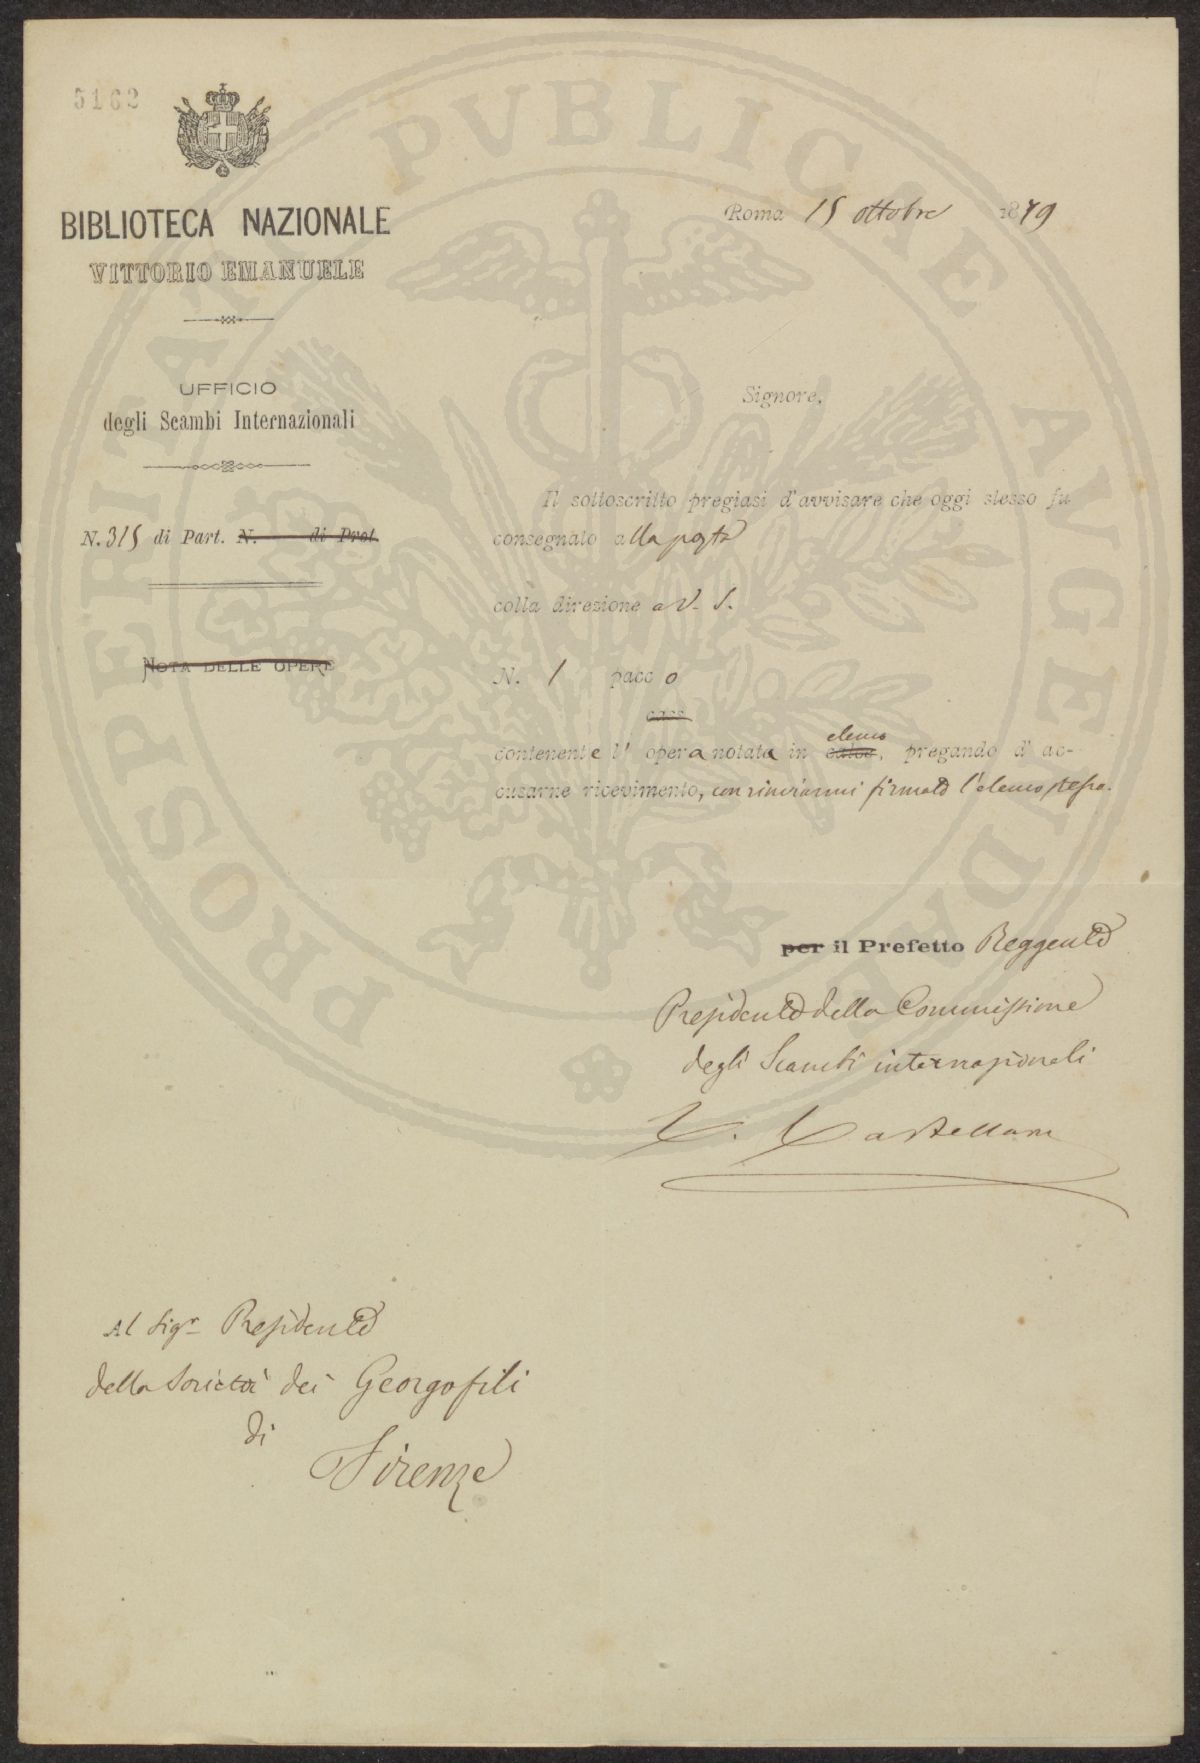 5162
BIBLIOTECA NAZIONALE
VITTORIO EMANUELE
UFFICIO
degli Scambi Internazionali
N. 315 di Part. N. di Prot.
NOTA DELLE OPERE
Roma 15 ottobre 1879
Signore,
Il sottoscritto pregiasi d'avvisare che oggi stesso fu
consegnato alla posta
colla direzione a V. S.
N. 1 pacco
casse
elenco
contenente l' opera notata in calce, pregando d' ac-
cusarne ricevimento, con rinviarmi firmato l'elenco stesso.
per il Prefetto Reggente
Presidente della Commissione
degli Scambi internazionali
V. Castellani
Al Sigr Presidente
della Società dei Georgofili
di
Firenze
PROSPERITATI PVBLICAE AVGENDAE